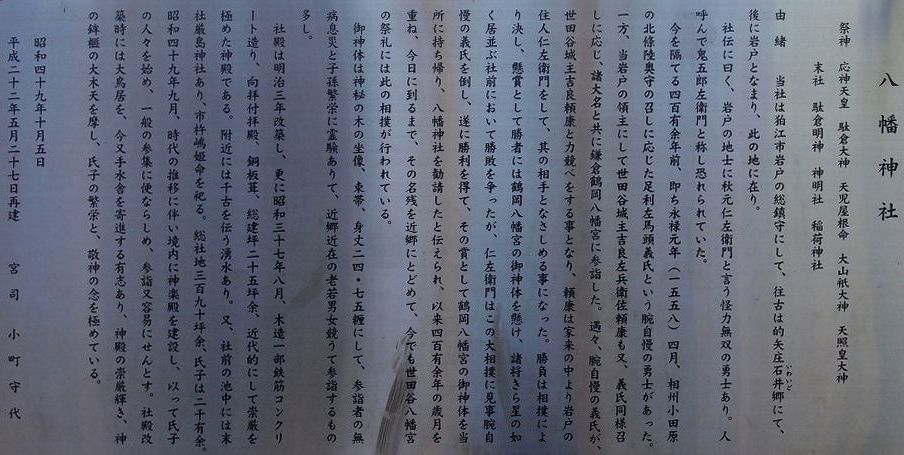 八幡神社
祭神 応神天皇 駄倉大神 天児屋根命 大山祇大神 天照皇大神
末社 駄倉明神 神明社 稲荷神社
由緒 当社は狛江市岩戸の総鎮守にして、往古は的矢庄石井郷にて、
いわいど
後に岩戸となまり、此の地に在り。
社伝に曰く、岩戸の地士に秋元仁左衛門と言う怪力無双の勇士あり。人
呼んで鬼五郎左衛門と称し恐れられていた。
今を隔てる四百有余年前、即ち永禄元年(一五五八)四月、相州小田原
の北條陸奥守の召しに応じた足利左馬頭義氏という腕自慢の勇士があった。
一方、当岩戸の領主にして世田谷城主吉良左兵衛佐頼康も又、義氏同様召
しに応じ、諸大名と共に鎌倉鶴岡八幡宮に参詣した。遇々、腕自慢の義氏が、
世田谷城主吉良頼康と力競べをする事となり、頼康は家来の中より岩戸の
住人仁左衛門をして、其の相手となさしめる事になった。勝負は相撲によ
り決し、懸賞として勝者には鶴岡八幡宮の御神体を懸け、諸将きら星の如
く居並ぶ社前において勝敗を争ったが、仁左衛門はこの大相撲に見事腕自
慢の義氏を倒し、遂に勝利を得て、その賞として鶴岡八幡宮の御神体を当
所に持ち帰り、八幡神社を勧請したと伝えられ、以来四百有余年の歳月を
重ね、今日に到るまで、その名残を近郷にとどめて、今でも世田谷八幡宮
の祭礼には此の相撲が行われている。
御神体は神秘の木の坐像、束帯、身丈二四・七五糎にして、参詣者の無
病息災と子孫繁栄に霊験ありて、近郷近在の老若男女競うて参詣するもの
多し。
社殿は明治三年改築し、更に昭和三十七年八月、木造一部鉄筋コンクリ
ート造り、向拝付拝殿、銅板葺、総建坪二十五坪余、近代的にして崇厳を
極めた神殿である。附近には千古を伝う湧水あり。又、社前の池中には末
社厳島神社あり、市杵嶋姫命を祀る。総社地三百九十坪余、氏子は二千有余。
昭和四十九年九月、時代の推移に伴い境内に神楽殿を建設し、以って氏子
の人々を始め、一般の参集に便ならしめ、参詣又容易にせんとす。社殿改
築時には大鳥居を、今又手水舎を寄進する有志あり、神殿の崇厳輝き、神
の欅の大木天を摩し、氏子の繁栄と、敬神の念を極めている。
昭和四十九年十月五日
平成二十二年五月二十七日再建 宮司 小町守代